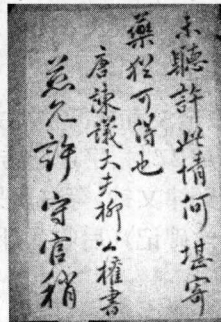 未聽許此情何堪寄
藥猶可得也
唐諫議大夫柳公權書
慈允許守官稍